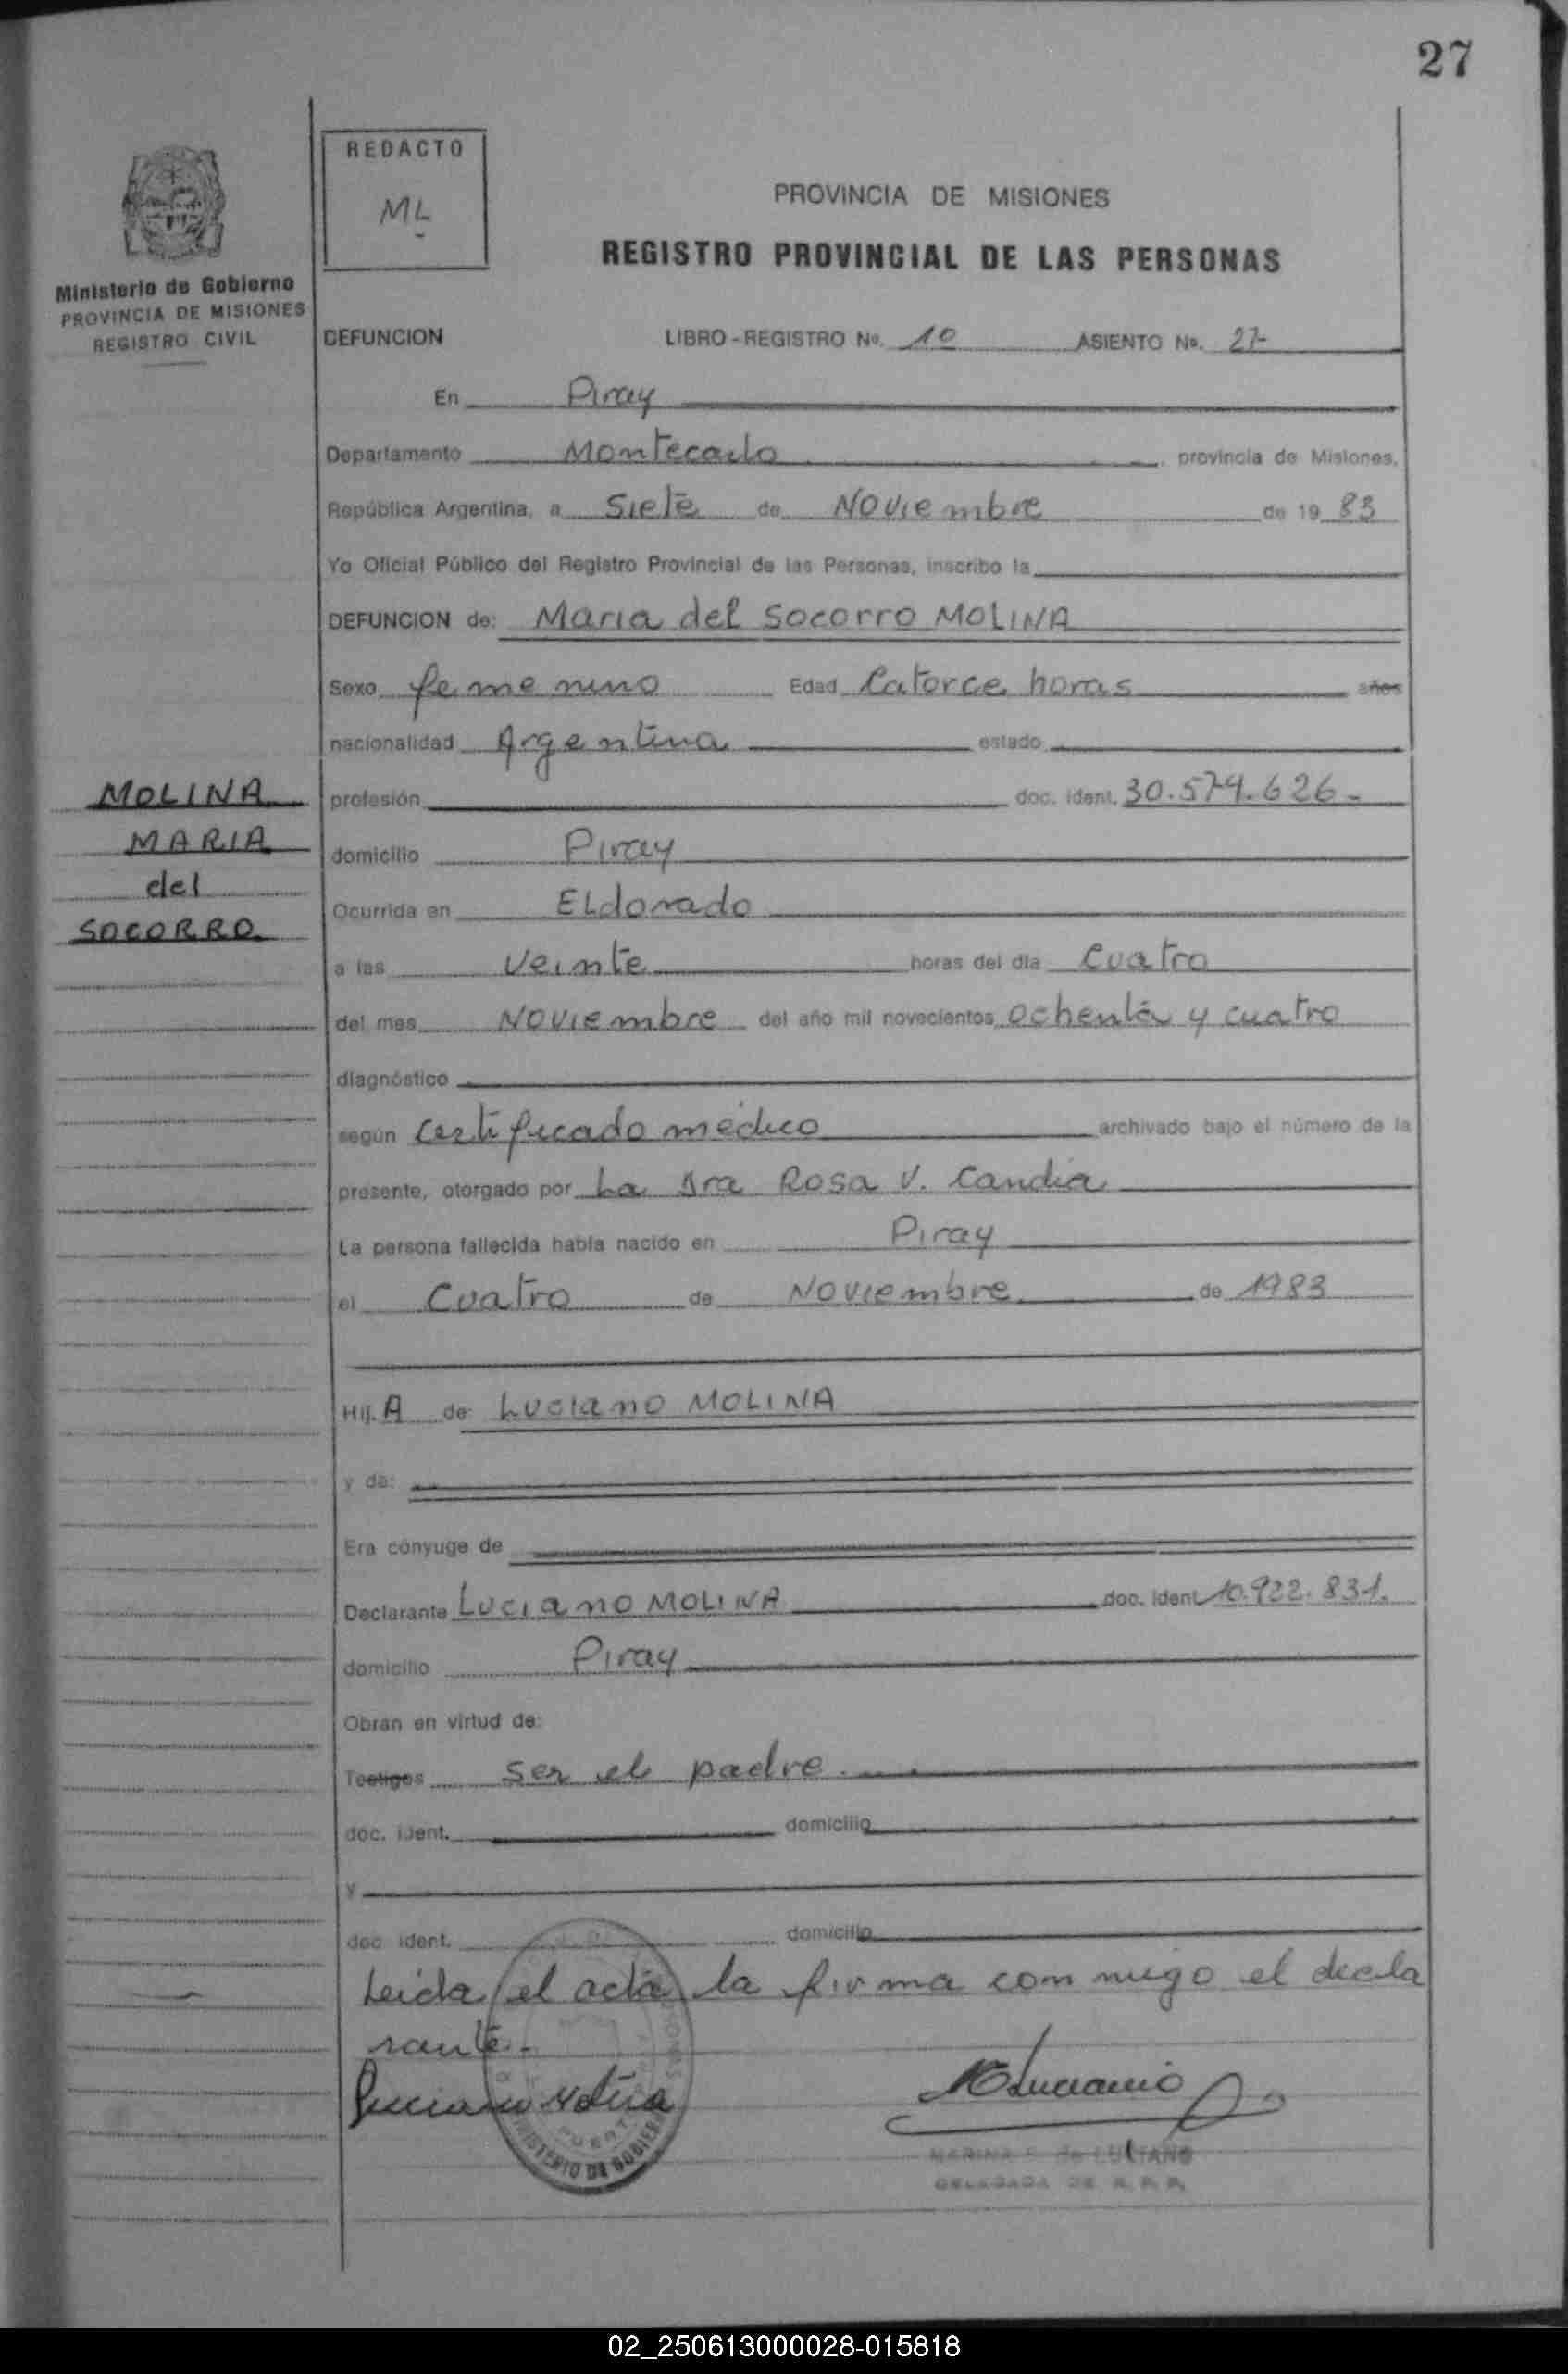 27
REDACTO
ML
PROVINCIA DE MISIONES
REGISTRO PROVINCIAL DE LAS PERSONAS
Ministerio de Gobierno
PROVINCIA DE MISIONES
REGISTRO CIVIL
DEFUNCION LIBRO-REGISTRO No. 10 ASIENTO No. 27
En Piray
Departamento Montecarlo provincia de Misiones,
República Argentina, a Siete de Noviembre de 19 83
Yo Oficial Público del Registro Provincial de las Personas, inscribo la
DEFUNCION de: Maria del Socorro MOLINA
Sexo femenino Edad Catorce horas años
nacionalidad Argentina estado
MOLINA
MARIA
del
SOCORRO
profesión doc. ident. 30.574.626.-
domicilio Piray
Ocurrida en ELdorado
a las Veinte horas del día Cuatro
del mes Noviembre del año mil novecientos ochenta y cuatro
diagnóstico
según Certificado médico archivado bajo el número de la
presente, otorgado por La Dra Rosa V. Candia
La persona fallecida había nacido en Piray
el Cuatro de Noviembre de 1983
Hij. A de Luciano MOLINA
y de:
Era cónyuge de
Declarante Luciano MOLINA doc. ident 10.922.831.
domicilio Piray
Obran en virtud de:
Testigos ser el padre.
doc. ident. domicilio
y
doc. ident. domicilio
Leida el acta la firma conmigo el decla
rante.-
Luciano Molina
MLuciano
MINISTERIO DE GOBIERNO
PUERTO
MARINA de LUCIANO
DELEGADA DE R. P. P.
02_250613000028-015818